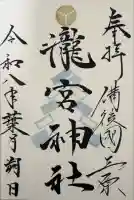 奉拝 備後國三原
瀧宮神社
令和八年葉月朔日